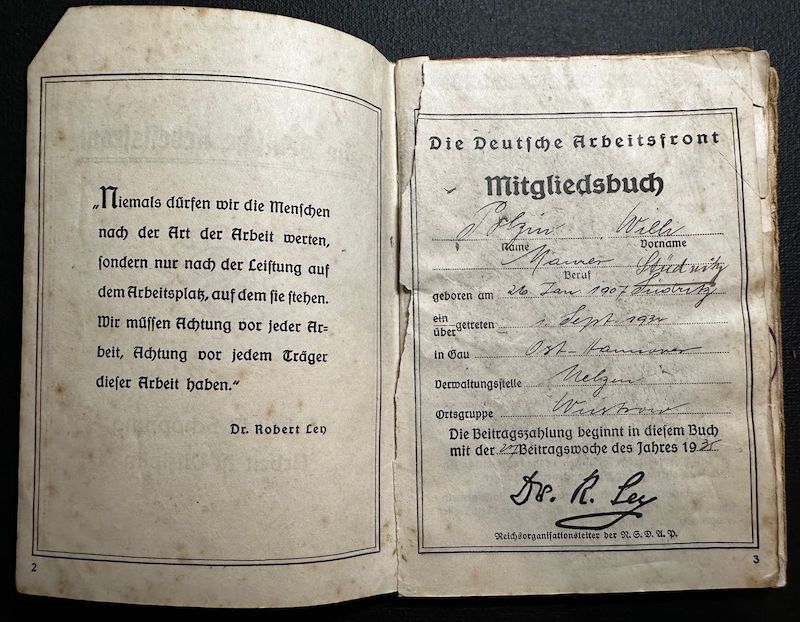 „Niemals dürfen wir die Menschen
nach der Art der Arbeit werten,
sondern nur nach der Leistung auf
dem Arbeitsplatz, auf dem sie stehen.
Wir müssen Achtung vor jeder Ar-
beit, Achtung vor jedem Träger
dieser Arbeit haben.“
Dr. Robert Ley
2
Die Deutsche Arbeitsfront
Mitgliedsbuch
Polzin Willi
Name Vorname
Maurer
Beruf
geboren am 26 Jan. 1907
ein
über getreten 1. Sept.
in Gau Ost-Hannover
Verwaltungsstelle Uelzen
Ortsgruppe Wustrow
Die Beitragszahlung beginnt in diesem Buch
mit der Beitragswoche des Jahres 1935
Dr. R. Ley
Reichsorganisationsleiter der N.S.D.A.P.
3